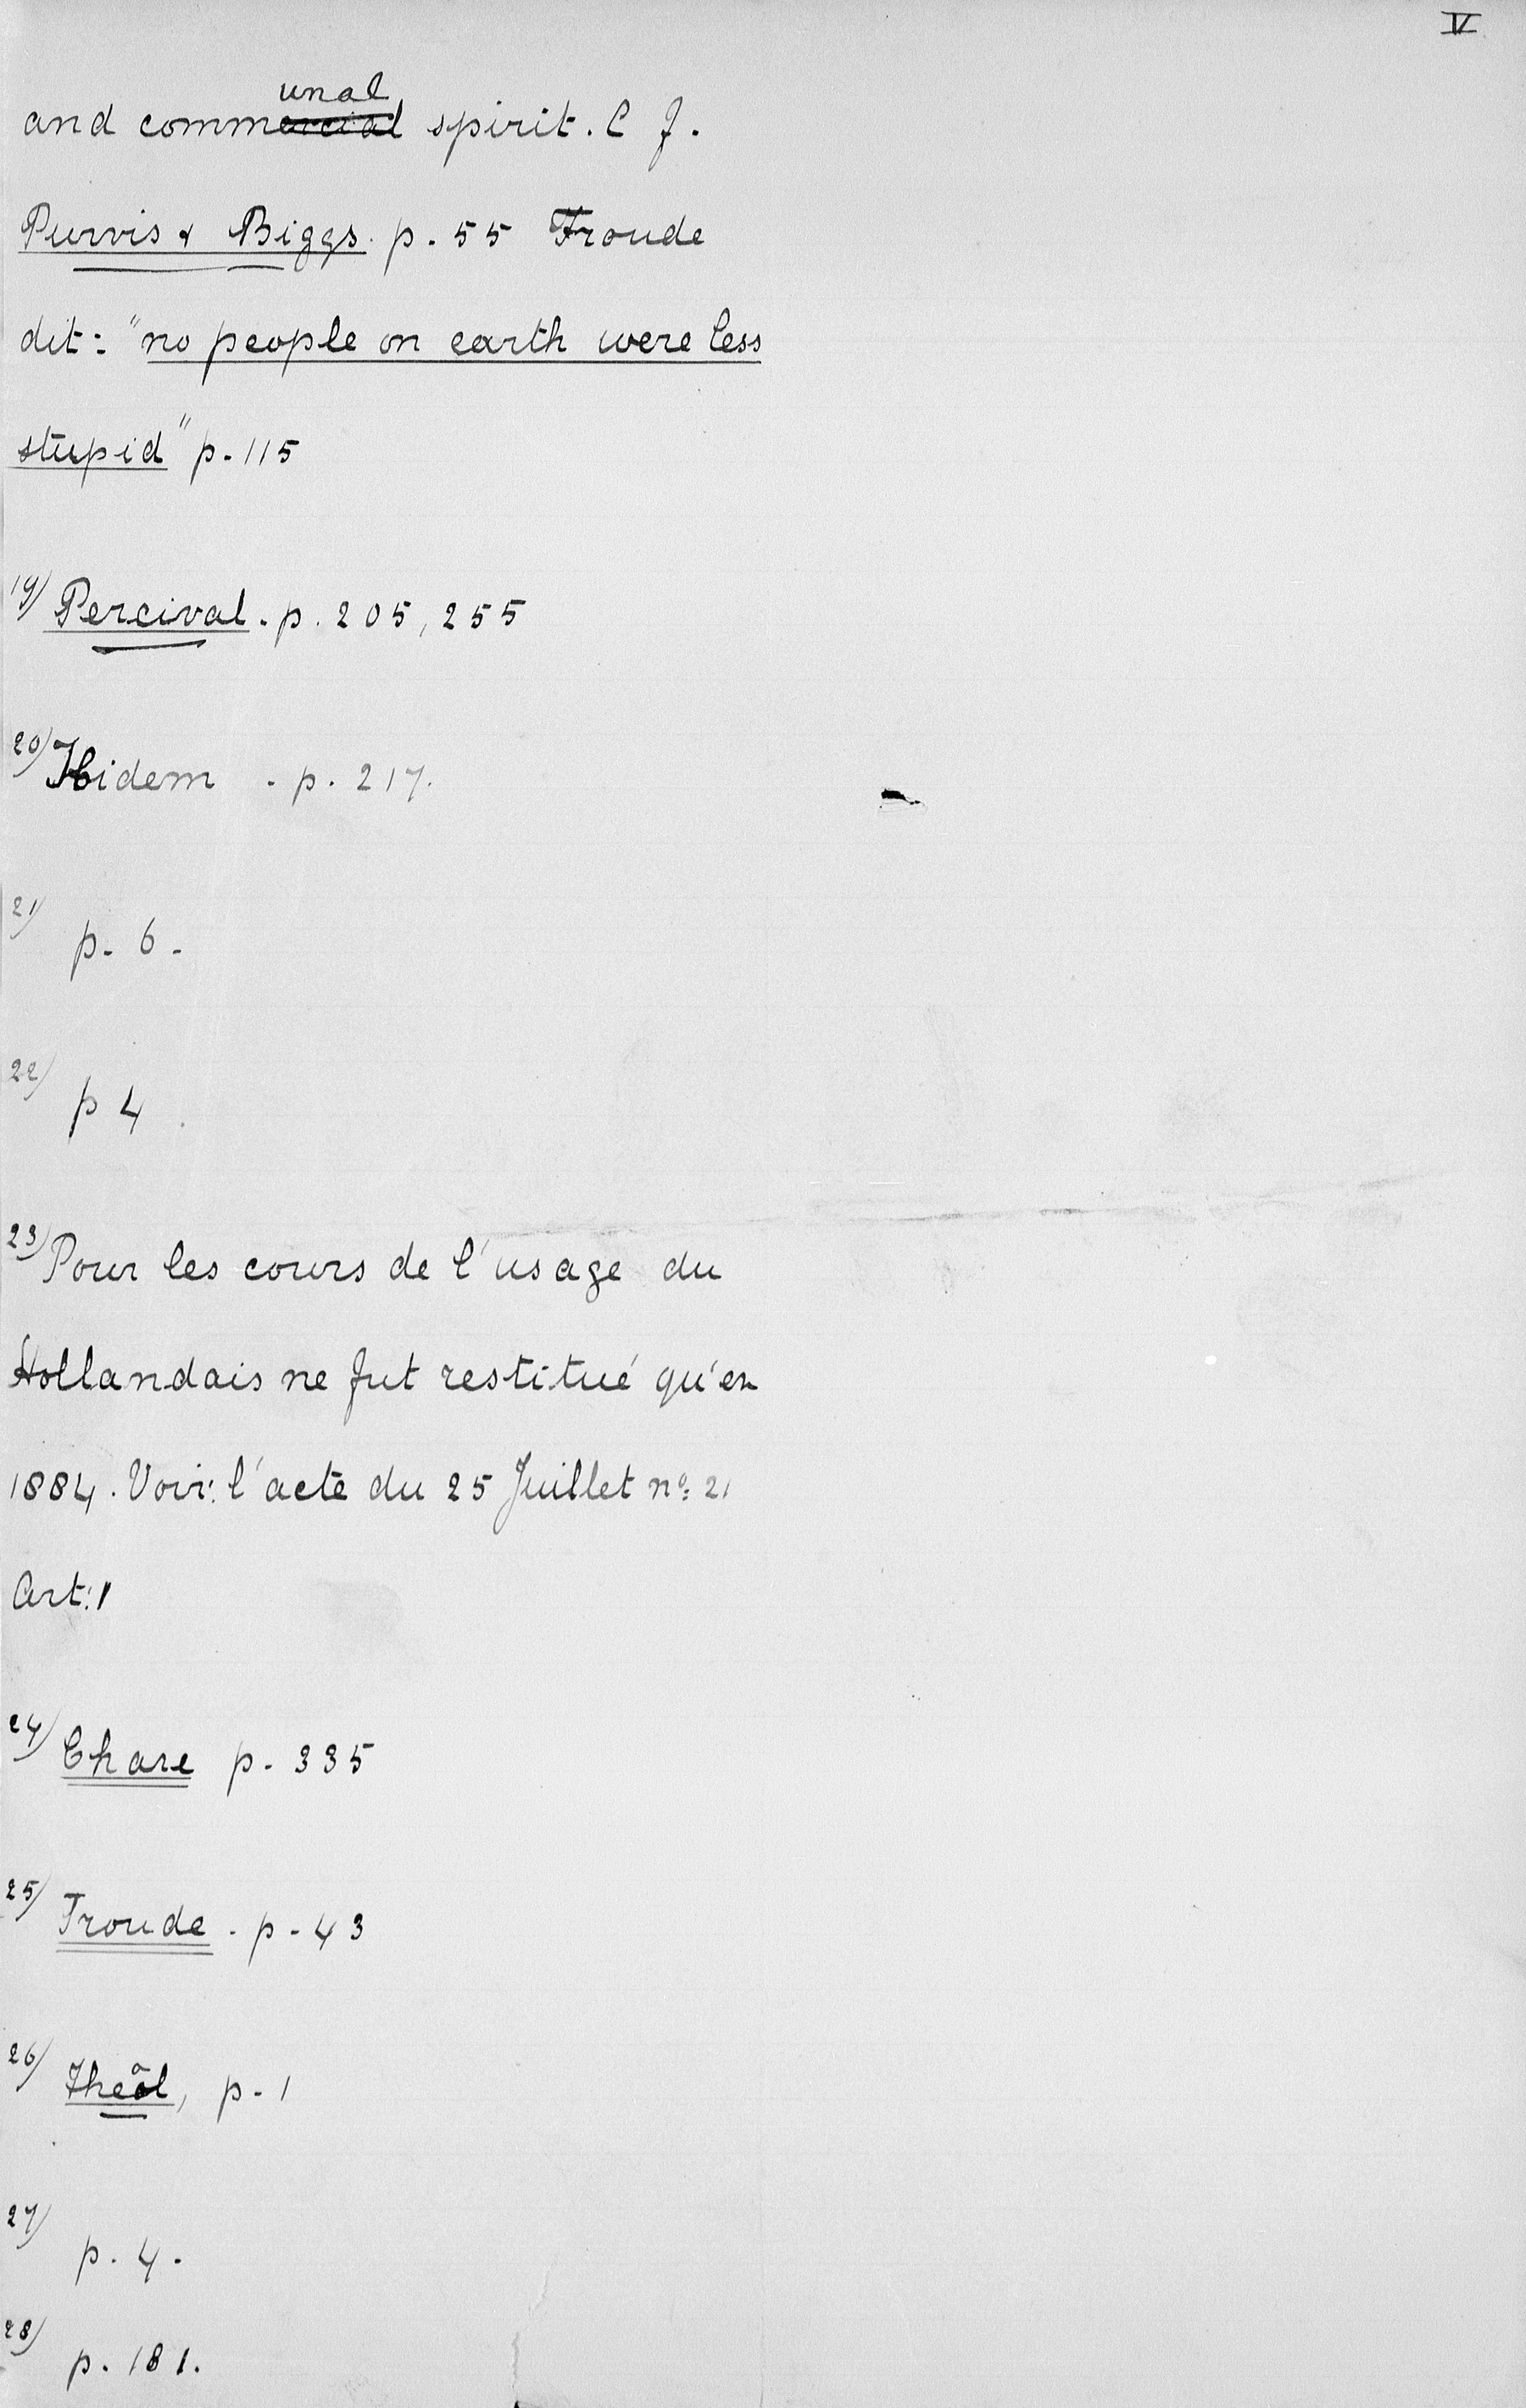 IV
and communal spirit. C f.
Purvis & Biggs. p. 55 Froude
dit: "no people on earth were less
stupid" p. 115
19) Percival. p. 205, 255
20) Ibidem. p. 217.
21) p. 6.
22) p 4.
23) Pour les cours de l'usage du
Hollandais ne fut restitué qu'en
1884. Voir: l'acte du 25 Juillet no: 21
Art: 1
24) Chase p. 335
25) Froude. p. 43
26) Theâl, p. 1
27) p. 4.
28) p. 181.